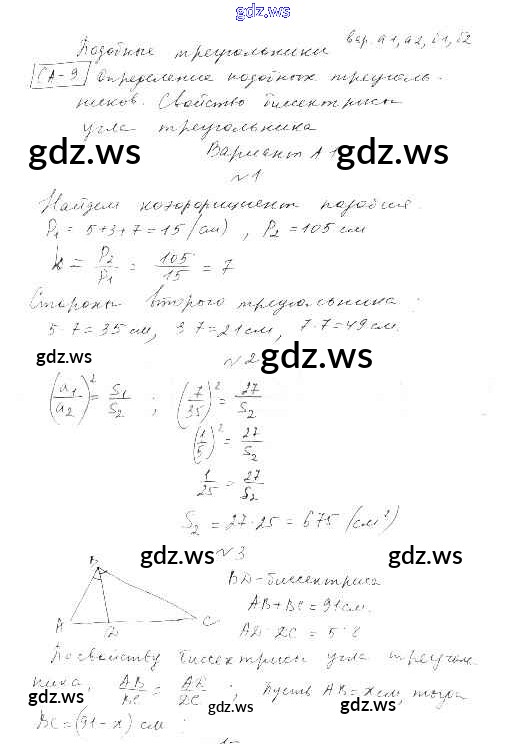 gdz.ws
вар. А1, А2, Б1, Б2
Подобные треугольники
СА-9 Определение подобных треуголь-
ников. Свойство биссектрисы
угла треугольника
gdz.ws gdz.ws
Вариант А1
№1
Найдем коэффициент подобия.
P₁ = 5+3+7=15 (см), P₂ = 105 см
k = P₂/P₁ = 105/15 = 7
Стороны второго треугольника:
5·7=35 см, 3·7=21 см, 7·7=49 см.
gdz.ws №2 gdz.ws
(a₁/a₂)² = S₁/S₂ ; (7/35)² = 27/S₂
(1/5)² = 27/S₂
1/25 = 27/S₂
S₂ = 27·25 = 675 (см²)
gdz.ws №3 gdz.ws
BD - биссектриса
AB+BC=91 см.
B
A D C
По свойству биссектрисы угла треуголь-
ника, AB/BC = ; Пусть AB=x см, тогда
gdz.ws gdz.ws gdz.ws
BC=(91-x) см ;